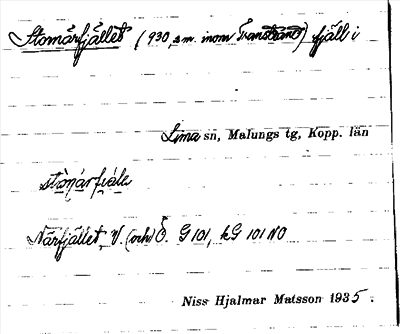 Stomärfjället (930, s.m. inom Transtrand) fjäll i
Lima sn, Malungs tg, Kopp. län
stòmárfiàlε
Närfjället, V. (och) Ö. G 101, kG 101 NO
Niss Hjalmar Matsson 1935.